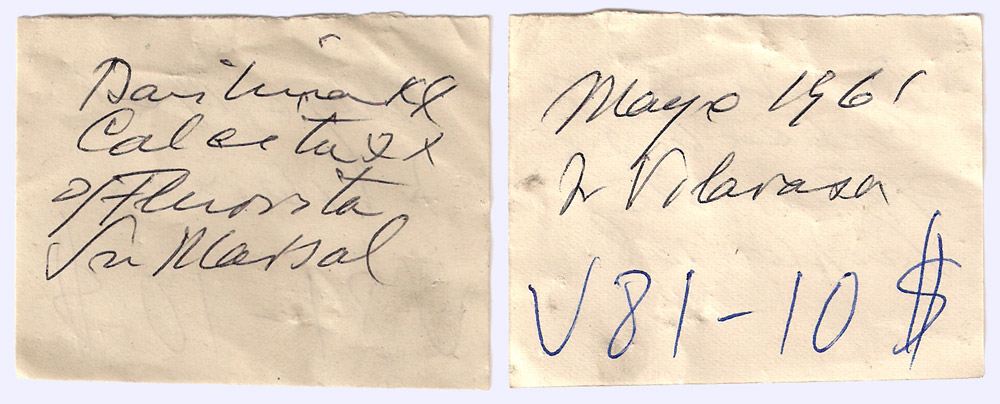 Baritina xx
Calcita xx
s/Fluorita
Sn Marsal
Mayo 1961
Vilarasa
V81-10 $